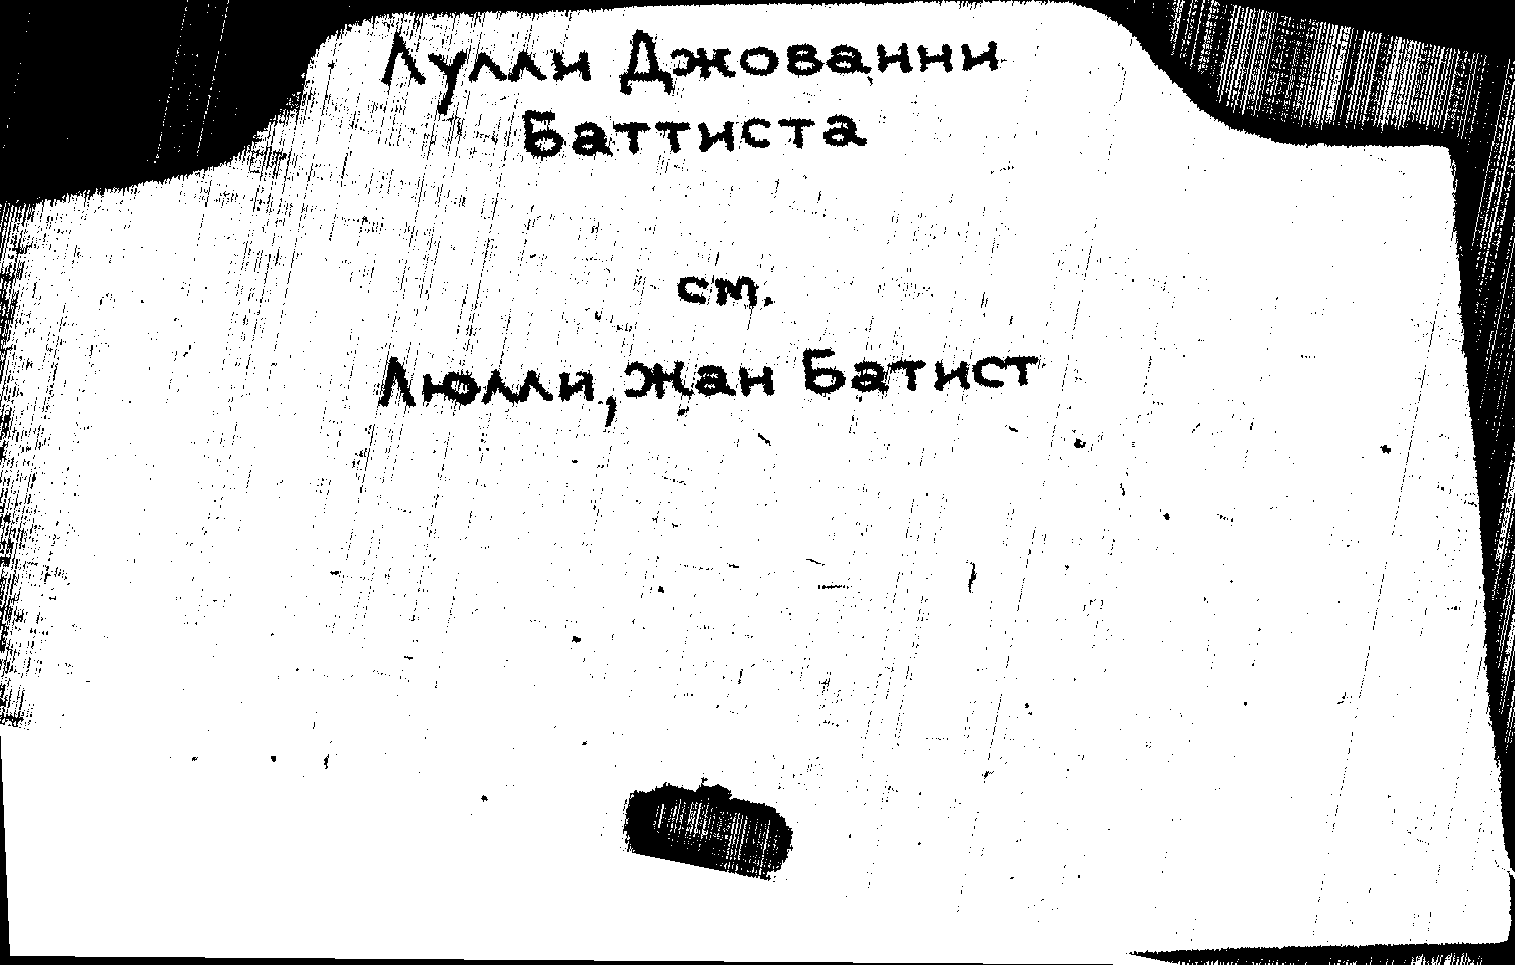 Лулли Джованни
Баттиста
см.
Люлли, Жан Батист